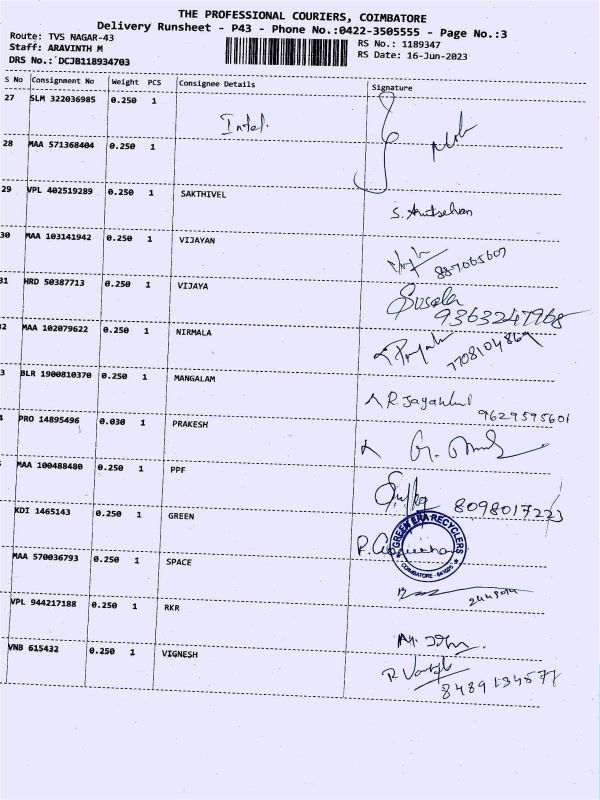 THE PROFESSIONAL COURIERS, COIMBATORE
Delivery Runsheet - P43 - Phone No.:0422-3505555 - Page No.:3
Route: TVS NAGAR-43
RS No.: 1189347
Staff: ARAVINTH M
RS Date: 16-Jun-2023
DRS No.: DCJB118934703
S No Consignment No Weight PCS Consignee Details Signature
27 SLM 322036985 0.250 1
Intel.
28 MAA 571368404 0.250 1
29 VPL 402519289 0.250 1 SAKTHIVEL
30 MAA 103141942 0.250 1 VIJAYAN
31 HRD 50387713 0.250 1 VIJAYA Susela
9363247968
2 MAA 102079622 0.250 1 NIRMALA
7708104869
3 BLR 1900810370 0.250 1 MANGALAM
9629595601
PRO 14895496 0.030 1 PRAKESH
MAA 100488480 0.250 1 PPF
8098017223
KDI 1465143 0.250 1 GREEN
GREEN ERA RECYCLERS
COIMBATORE
MAA 570036793 0.250 1 SPACE
VPL 944217188 0.250 1 RKR
VNB 615432 0.250 1 VIGNESH
8489134577